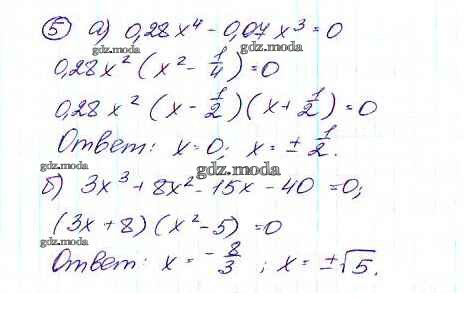 ⑤ а) 0,28x⁴ - 0,07x³ = 0
gdz.moda
gdz.moda
0,28x² (x² - 1/4) = 0
0,28x² (x - 1/2)(x + 1/2) = 0
gdz.moda
Ответ: x = 0; x = ± 1/2.
gdz.moda
б) 3x³ + 8x² - 15x - 40 = 0;
gdz.moda
(3x + 8)(x² - 5) = 0
gdz.moda
Ответ: x = - 8/3 ; x = ±√5.